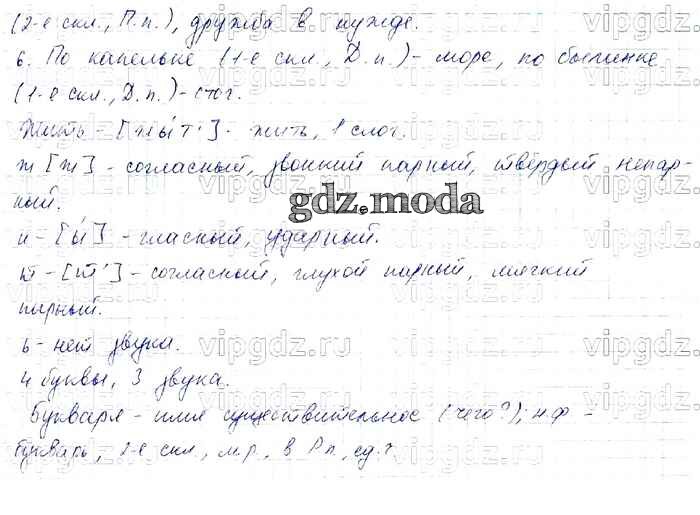 (2-е скл., П.п.), дружба в нужде.
6. По капельке (1-е скл., Д.п.) - море, по былинке
(1-е скл., Д.п.) - стог.
Жить - [жы́т'] - жить, 1 слог.
ж [ж] - согласный, звонкий парный, твёрдый непар-
ный.
gdz.moda
и - [ы́] - гласный, ударный.
т - [т'] - согласный, глухой парный, мягкий
парный.
ь - нет звука.
4 буквы, 3 звука.
Букваря - имя существительное (чего?); н.ф -
букварь, 2-е скл., м.р., в Р.п., ед.ч
vipgdz.ru